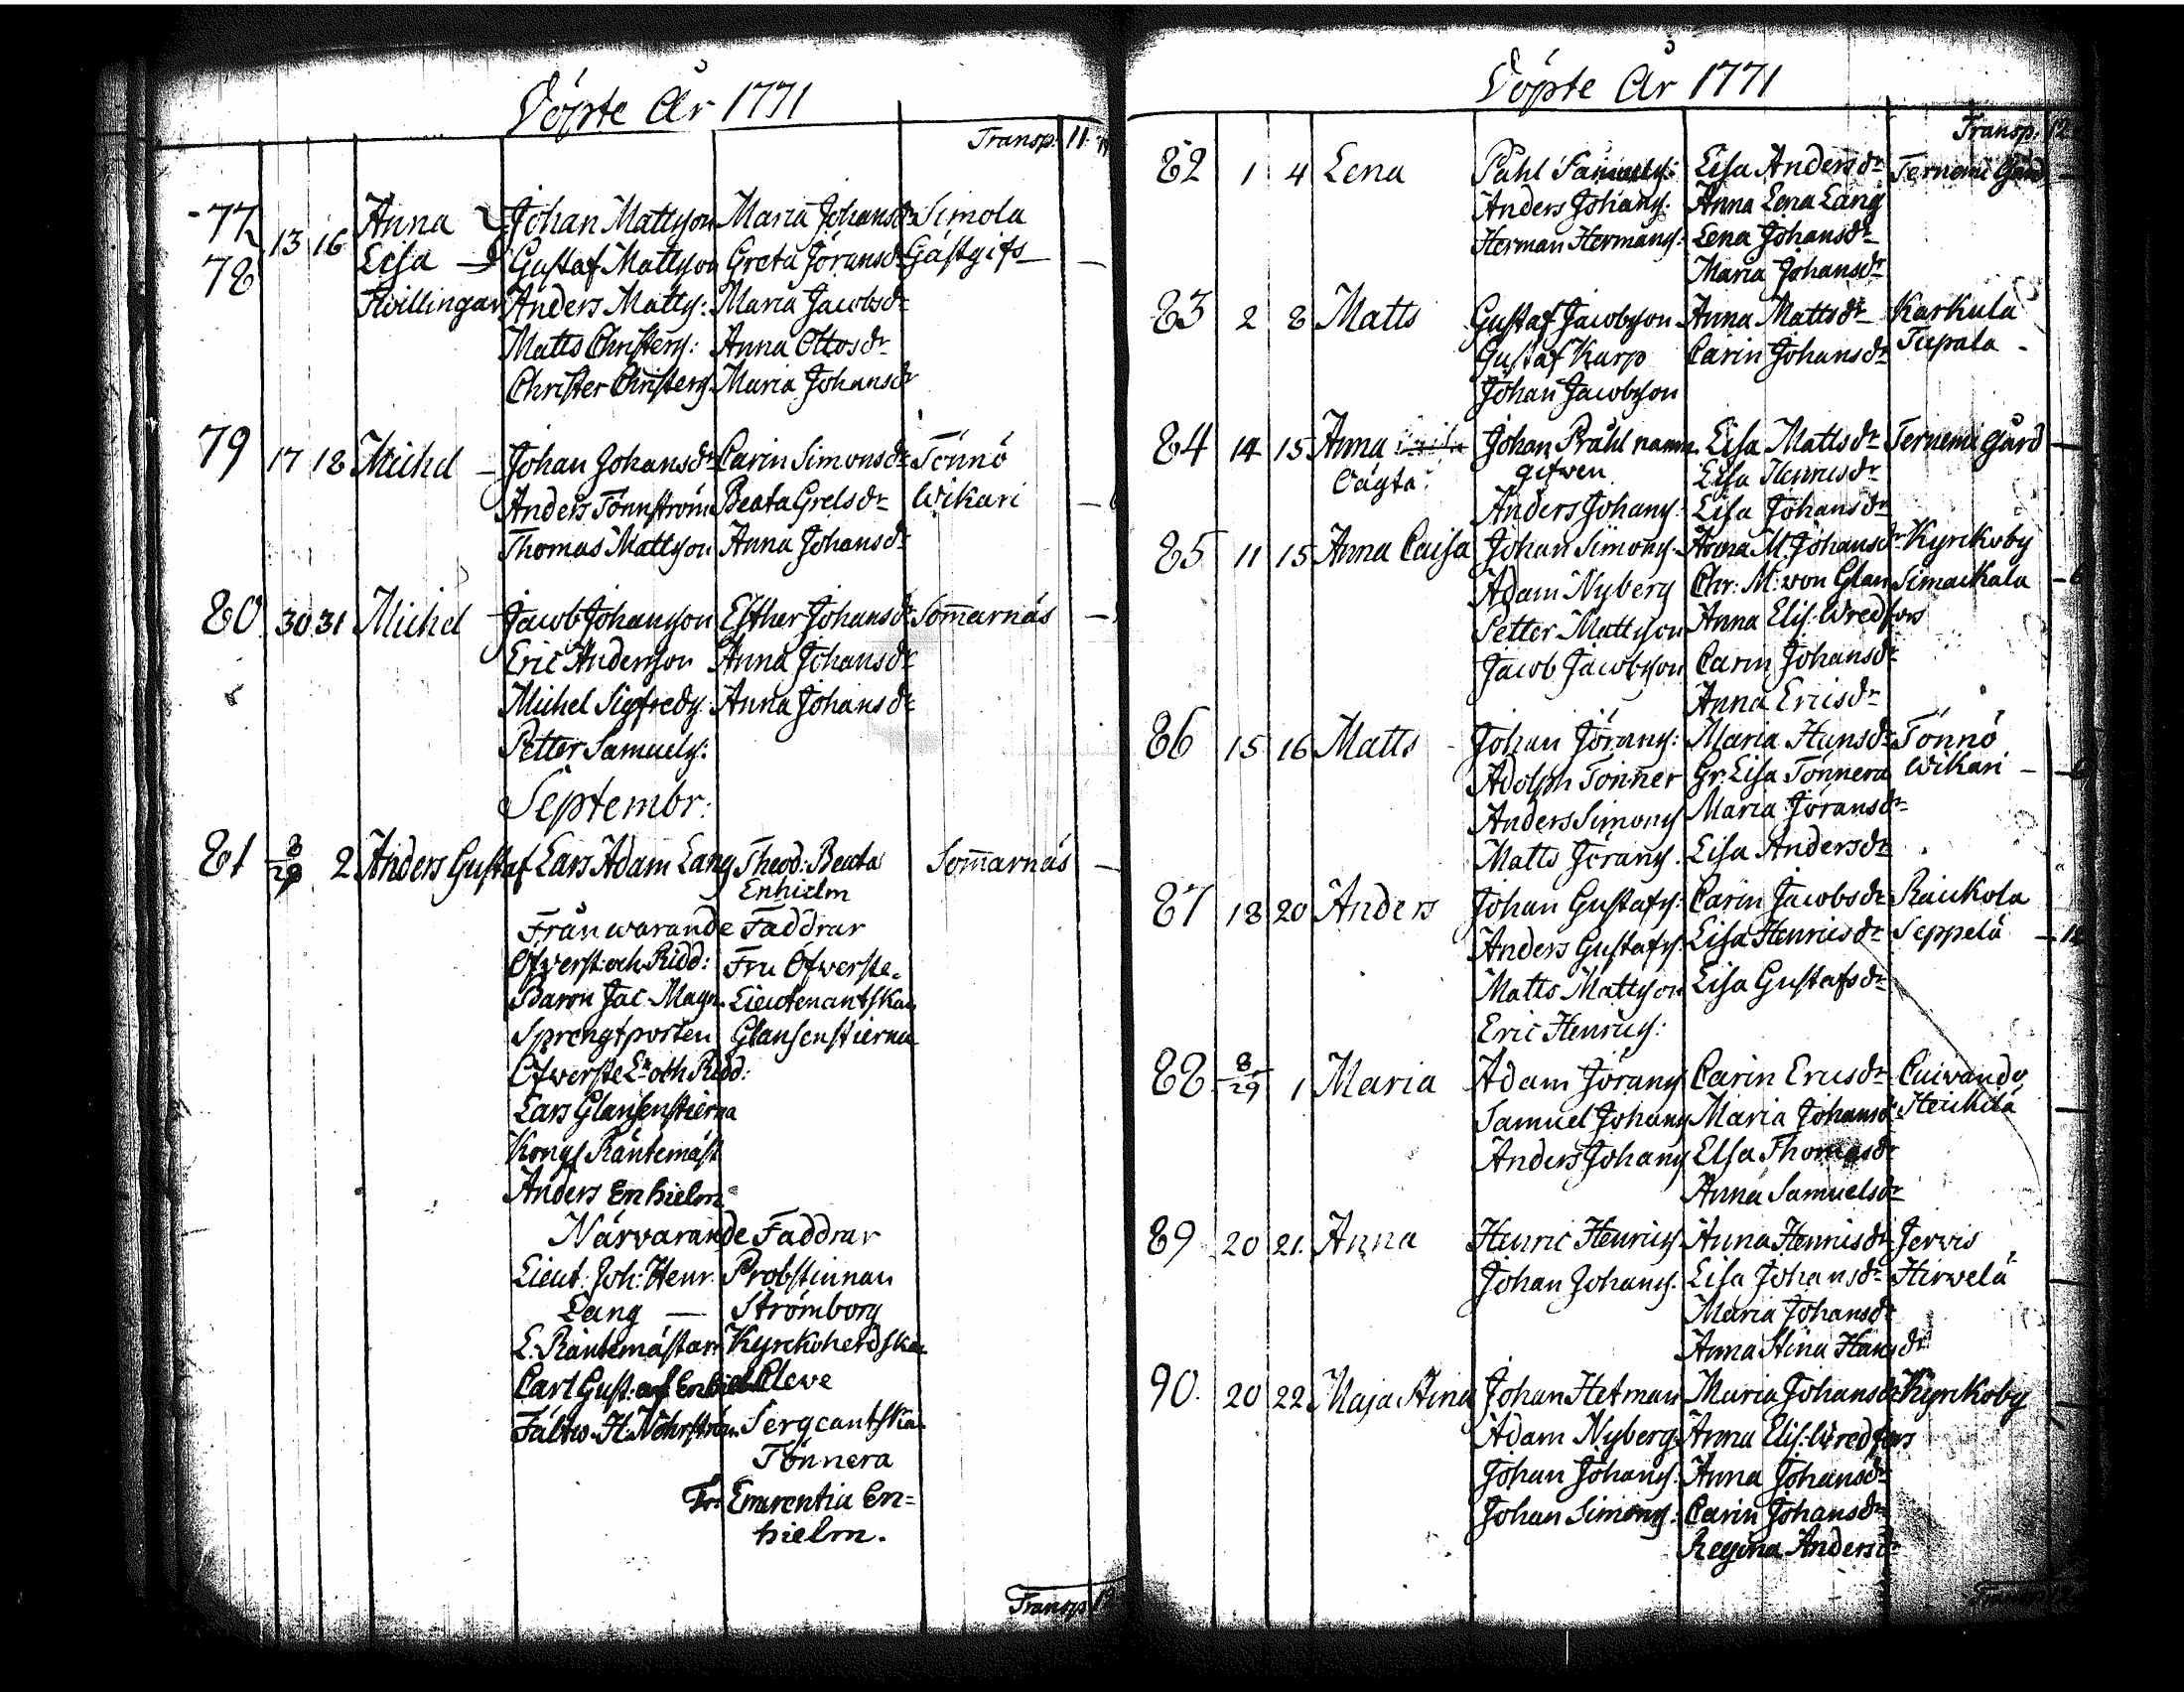 Döpte År 1771
Transp. 11
77 13 16 Anna Johan Mattsson Maria Johansdr Simola
78 Lisa Gustaf Mattsson Greta Jöransdr Gästgifv
Tvillingar Anders Mattss: Maria Jacobsdr
Matts Christers: Anna Ottosdr
Christer Christers. Maria Johansdr
79 17 18 Michel Johan Johansdr Carin Simonsdr Tönnö
Anders Tönnström Beata Grelsdr Wikari
Thomas Mattsson Anna Johansdr
80 30 31 Michel Jacob Johansson Esther Johansdr Som̄arnäs
Eric Andersson Anna Johansdr
Michel Sigfreds. Anna Johansdr
Petter Samuels:
Septembr:
81 8/29 2 Anders Gustaf Lars Adam Lang Theod: Beata Som̄arnäs
Enhielm
Frånwarande Faddrar
Öfverst: och Ridd: Fru Öfwerste-
Baron Jac. Magn. Lieutenantskan
Sprengtporten Glansenstierna
Öfwerste Lt och Ridd:
Lars Glansenstierna
Kongs Räntemäst
Anders Enhielm
Närvarande Faddrar
Lieut: Joh: Henr. Probstinnan
Lang — Strömborg
L. Räntemästarn Kyrkoherdskan
Carl Gust: af Enhielm Cleve
Fältw. H. Nohrström Sergeantskan
Tönnera
Fr: Emerentia En=
hielm.
Transp
Döpte År 1771
Transp. 12
82 1 4 Lena Påhl Samuels: Lisa Andersdr Terneme Gård
Anders Johans: Anna Lena Lang
Herman Hermans: Lena Johansdr
Maria Johansdr
83 2 8 Matts Gustaf Jacobsson Anna Mattsdr Karkula
Gustaf Karp Carin Johansdr Tupala
Johan Jacobsson
84 14 15 Anna Johan Pråhl namn Lisa Mattsdr Terneme gård
Oägta: gifven Lisa Henricsdr
Anders Johans. Lisa Johansdr
85 11 15 Anna Caisa Johan Simons. Anna M. Johansdr Kyrkoby
Adam Nyberg Chr: M: von Glan Simaikala
Petter Mattsson Anna Elis. Wredfors
Jacob Jacobsson Carin Johansdr
Anna Ericsdr
86 15 16 Matts Johan Jörans: Maria Hansdr Tönnö
Adolph Tönner Gr. Lisa Tönnera Wikari
Anders Simons Maria Jöransdr
Matts Jörans. Lisa Andersdr
87 18 20 Anders Johan Gustafs. Carin Jacobsdr Raickola
Anders Gustafs. Lisa Henricsdr Seppelä
Matts Mattsson Lisa Gustafsdr
Eric Henrics:
88 8/29 1 Maria Adam Jörans Carin Ericsdr Cuivando
Samuel Johans Maria Johansdr Heickilä
Anders Johans Elsa Thomasdr
Anna Samuelsdr
89 20 21. Anna Henric Henrics. Anna Henricsdr Jervis
Johan Johans. Lisa Johansdr Hirvelä
Maria Johansdr
Anna Stina Hansdr
90. 20 22. Maja Stina Johan Hetman Maria Johansdr Kyrkoby
Adam Nyberg Anna Elis: Wredfors
Johan Johans. Anna Johansdr
Johan Simons: Carin Johansdr
Regina Andersdr